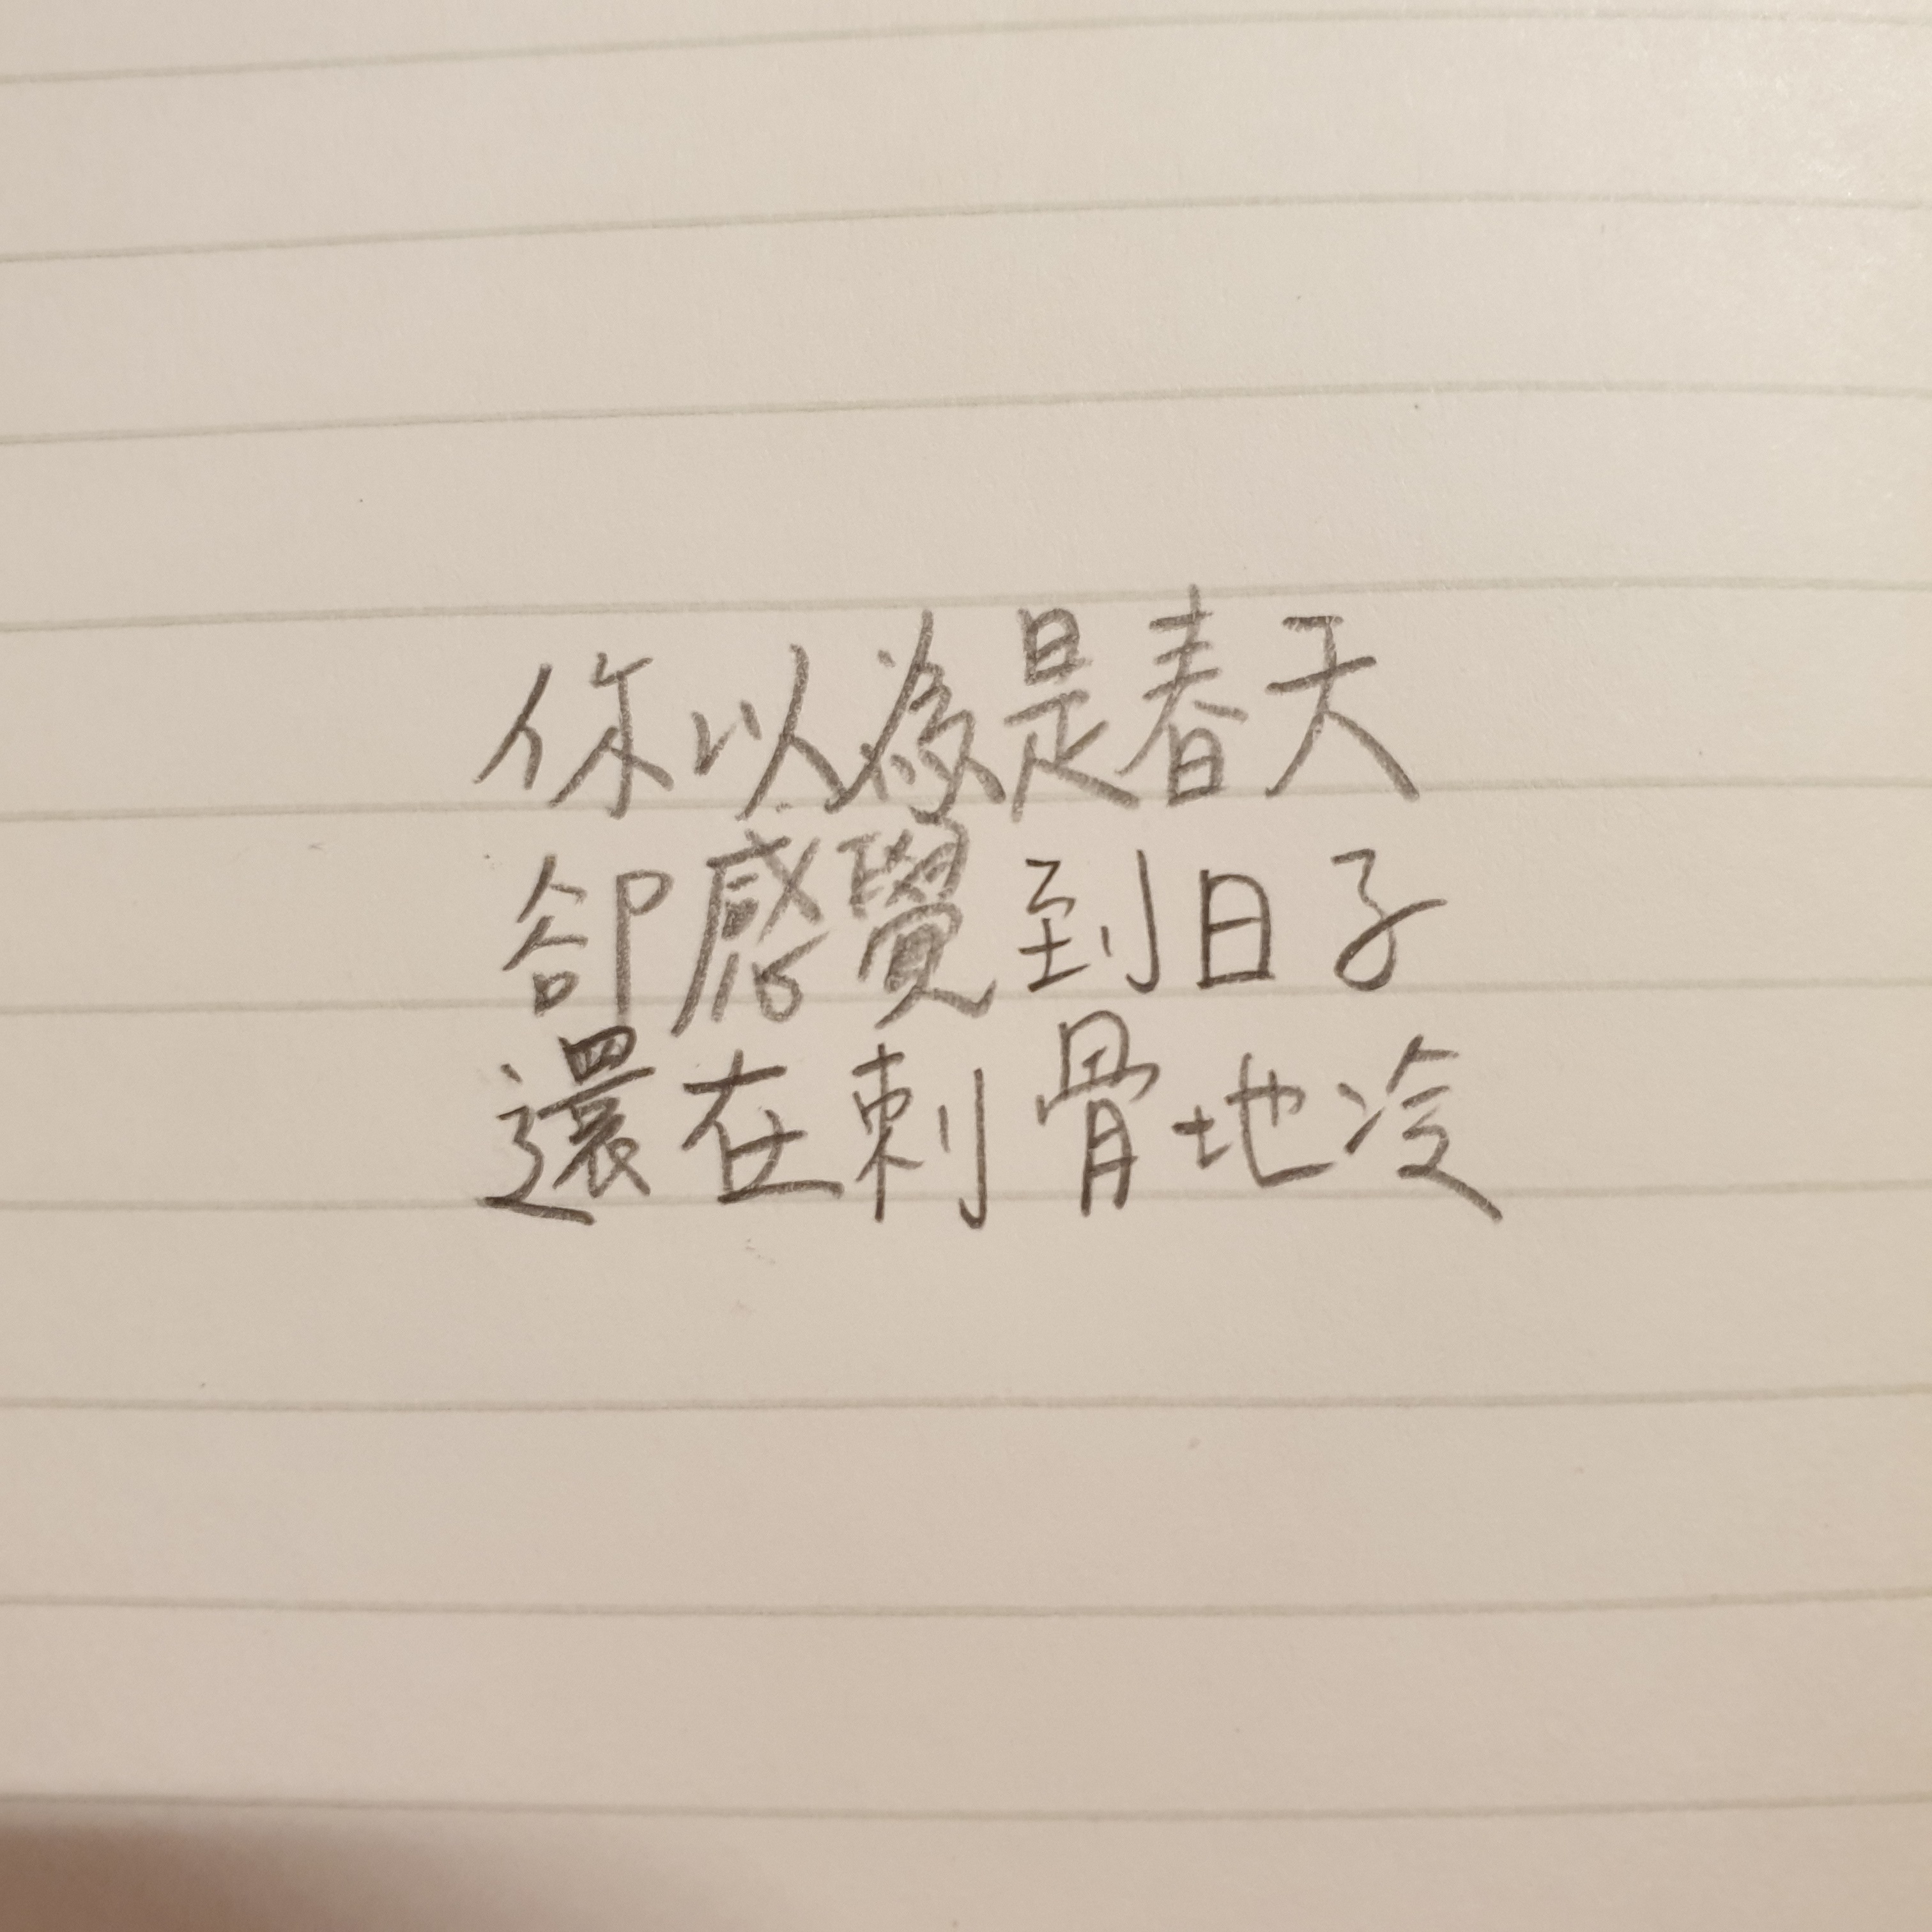 你以為是春天
卻感覺到日子
還在刺骨地冷